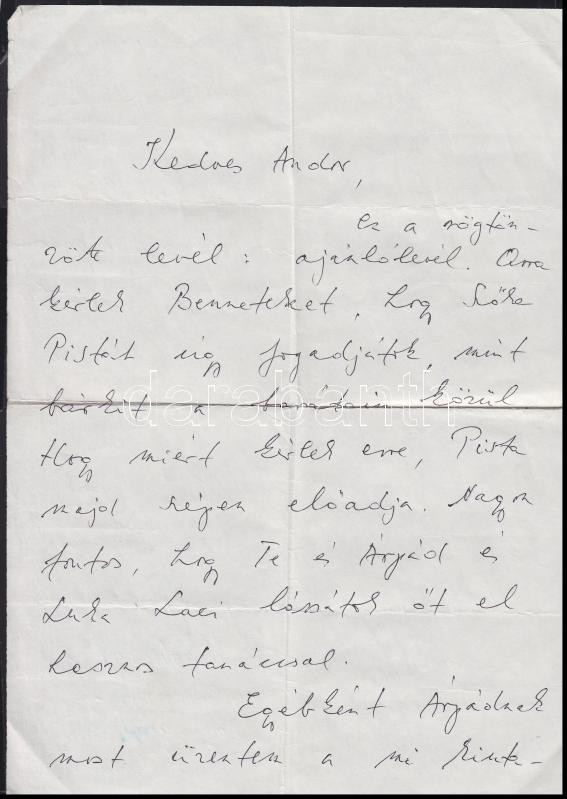 Kedves Andor,
ez a rögtön-
zött levél: ajánlólevél. Arra
kérlek Benneteket, hogy Kőke
Pistát úgy fogadjátok, mint
bárkit a barátaim közül
Hogy miért kérlek erre, Pista
majd szépen előadja. Nagyon
fontos, hogy Te és Árpád és
Luka Laci lássátok őt el
hasznos tanáccsal.
Egyébként Árpádnak
most üzentem a mi
darabanth